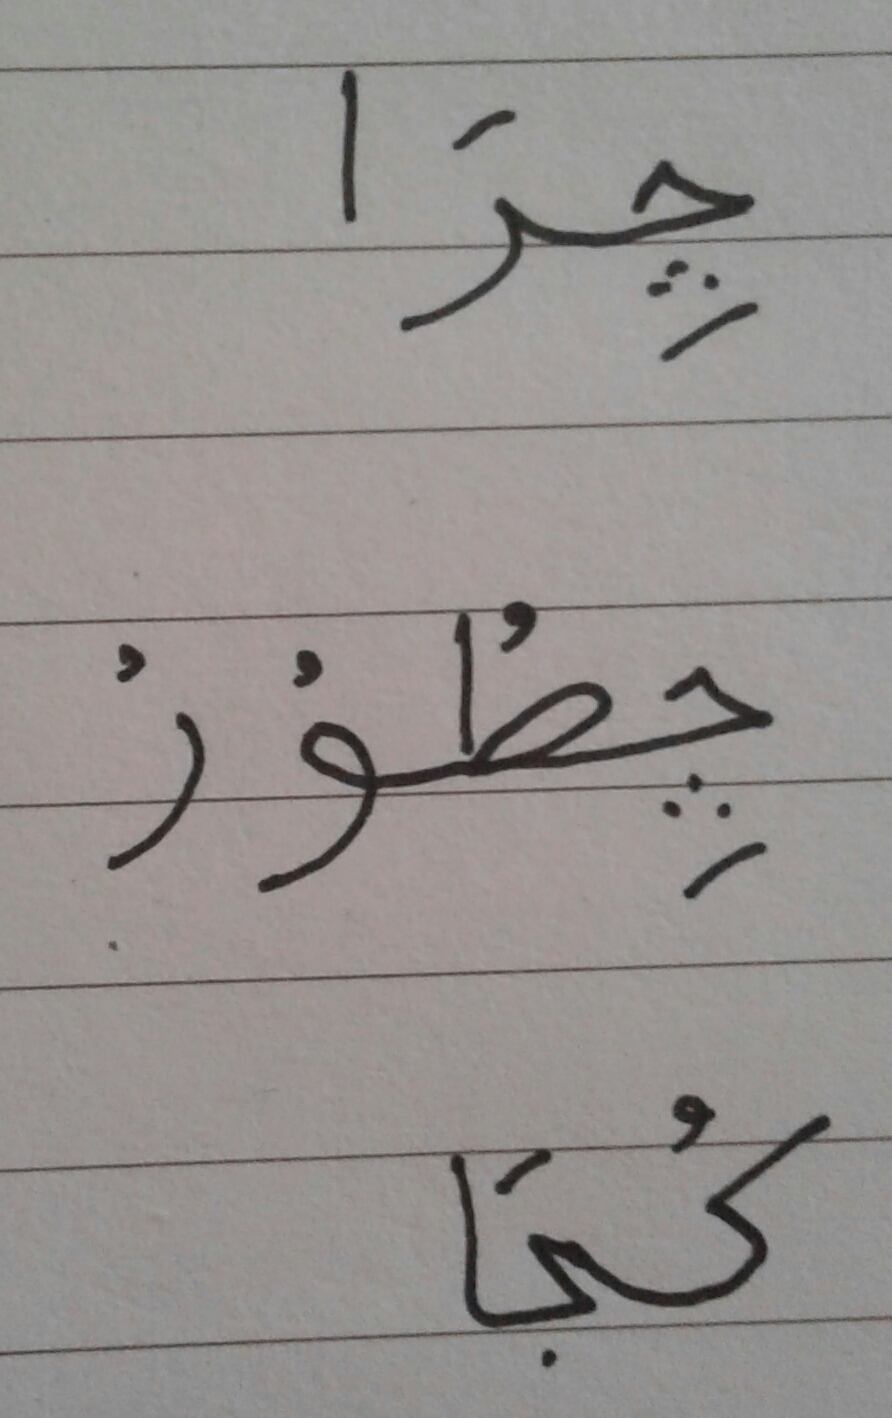 چِرَا
چِطُوُرُ
كُجَا